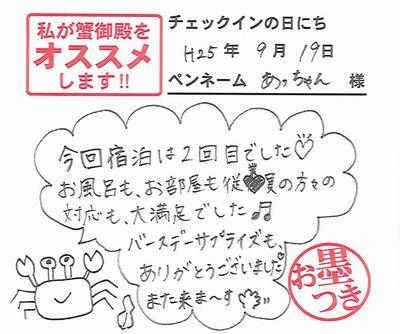 私が蟹御殿を
オススメ
します!!
チェックインの日にち
H25年 9月 19日
ペンネーム あっちゃん 様
今回宿泊は2回目でした♡
お風呂も、お部屋も従業員の方々の
対応も、大満足でした♫
バースデーサプライズも、
ありがとうございました
また来ま〜す
お墨つき